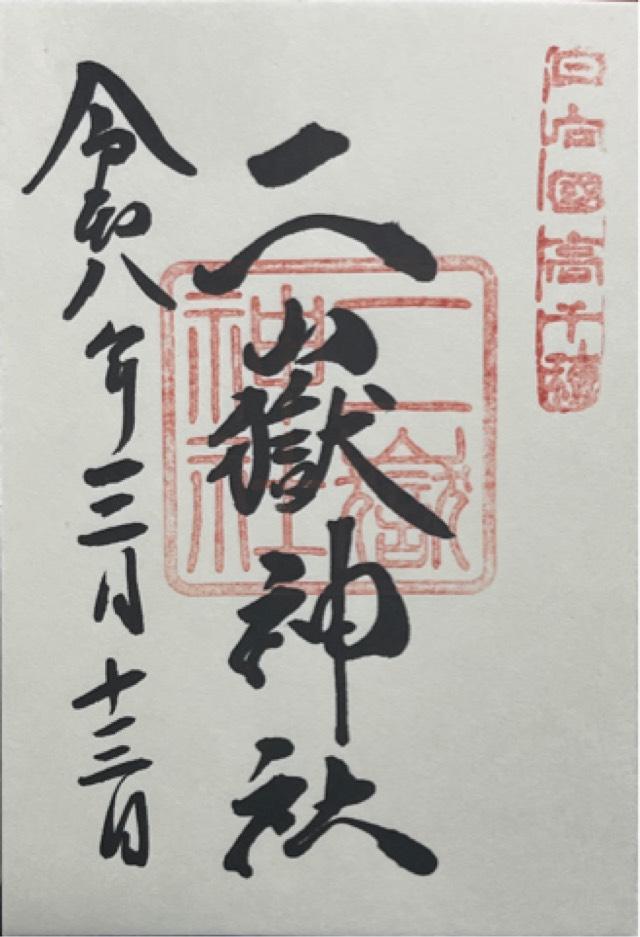 日向國高千穂
二嶽神社
二嶽神社
令和八年三月十三日